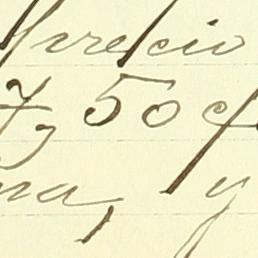 precio
7,50 c
na, y